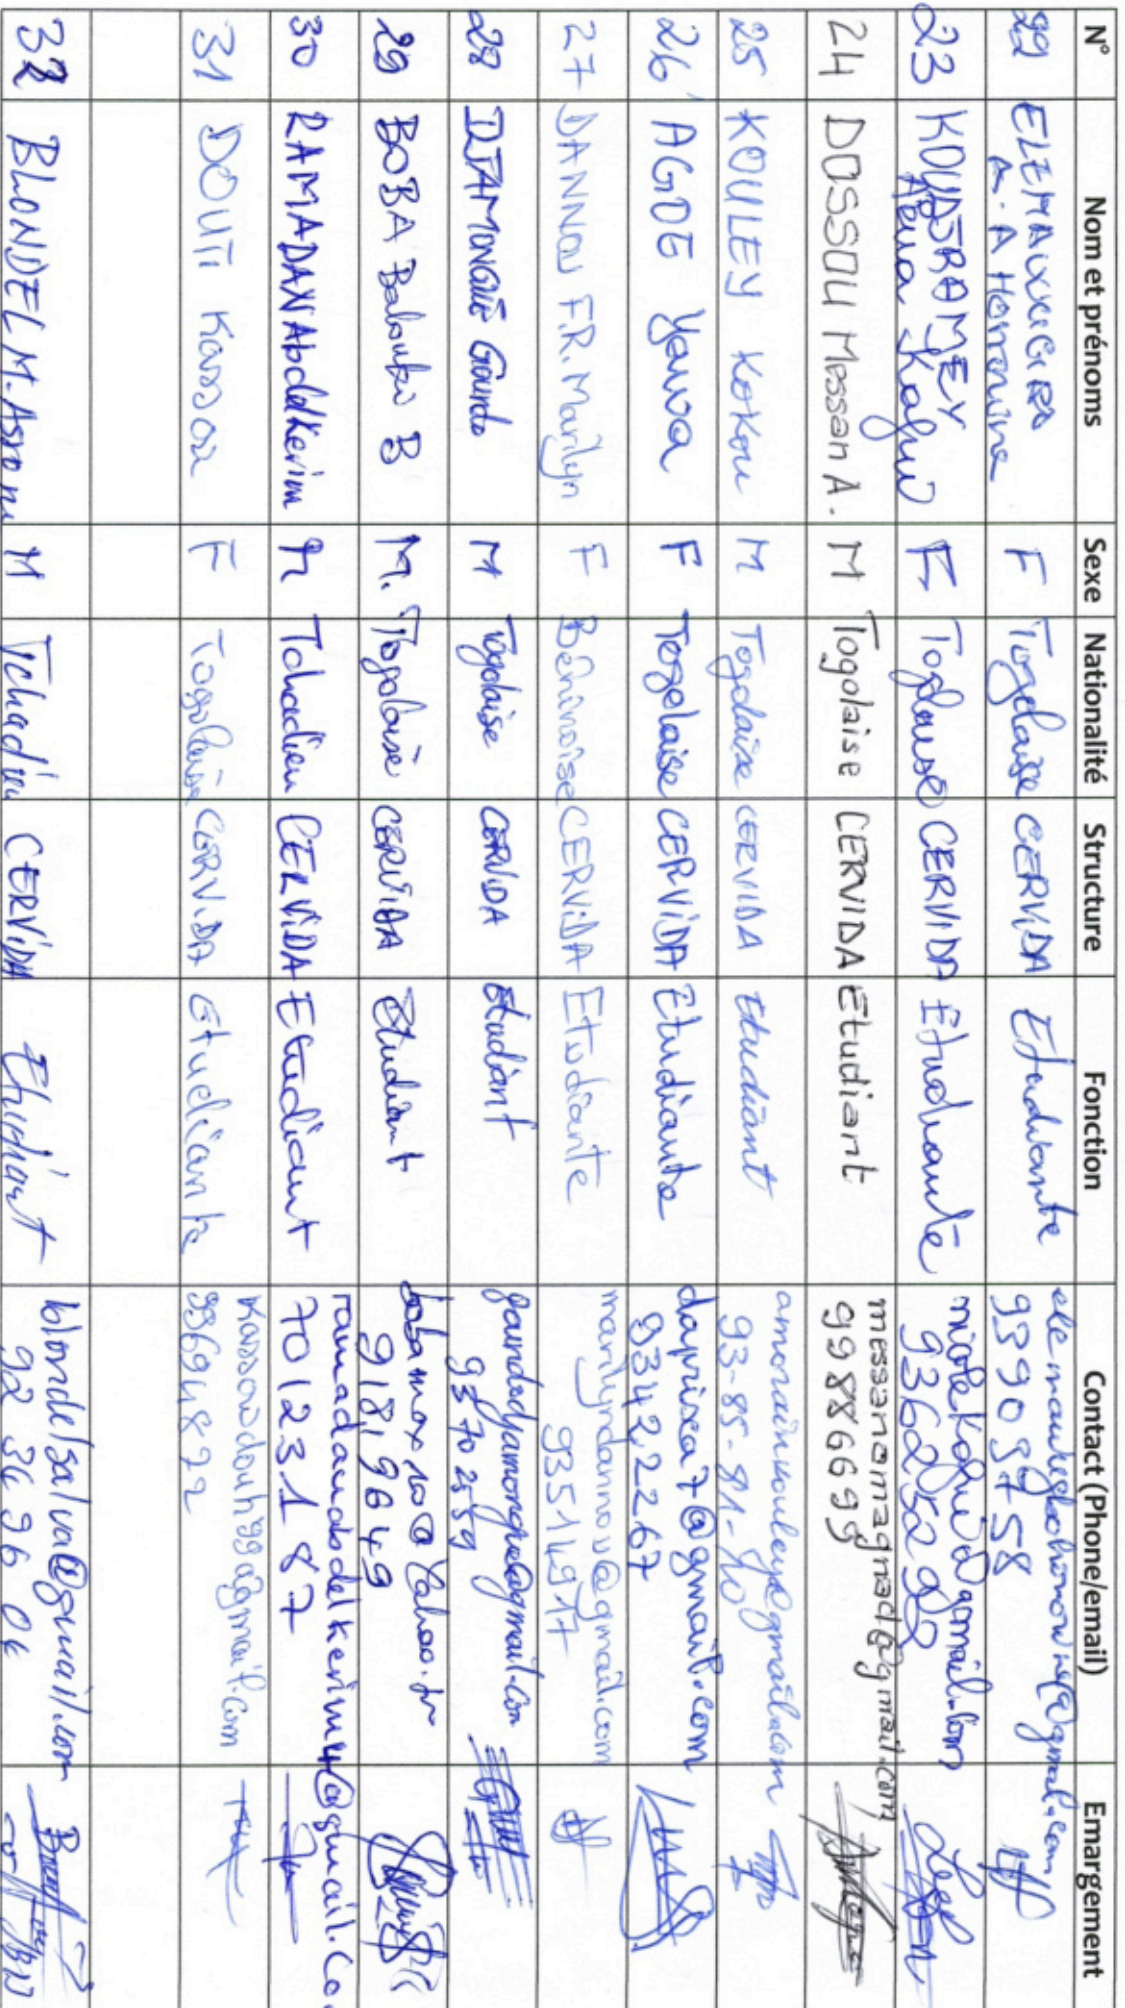 N° Nom et prénoms Sexe Nationalité Structure Fonction Contact (Phone/email) Emargement
22 A. A Honorine F Togolaise CERVIDA Etudiante
93909758
23 KOUDJRAMEY Kafui F Togolaise CERVIDA Etudiante
93625292
24 DOSSOU Messan A. M Togolaise CERVIDA Etudiant messanomagnad@gmail.com
99886699
25 KOULEY Kokou M Togolaise CERVIDA Etudiant amorainkouley@gmail.com
93-85-81-40
26 AGODE Yawa F Togolaise CERVIDA Etudiante daprisca7@gmail.com
93422267
27 DANNOU F.R. Marilyn F Béninoise CERVIDA Etudiante marilyndannou@gmail.com
93514917
28 DJAMONGUE Gounda M Togolaise CERVIDA Etudiant
93702559
29 BOBA B M. Togolaise CERVIDA Etudiant bobamax100@yahoo.fr
91819649
30 RAMADAN Abdelkerim M Tchadien CERVIDA Etudiant ramadanabdelkerim4@gmail.co.
70123187
31 DOUTI Kassoa F Togolaise CERVIDA Etudiante kassoadouti99@gmail.com
99694872
32 BLONDEL M. M Tchadien CERVIDA Etudiant blondelsalva@gmail.com
92 36 96 04